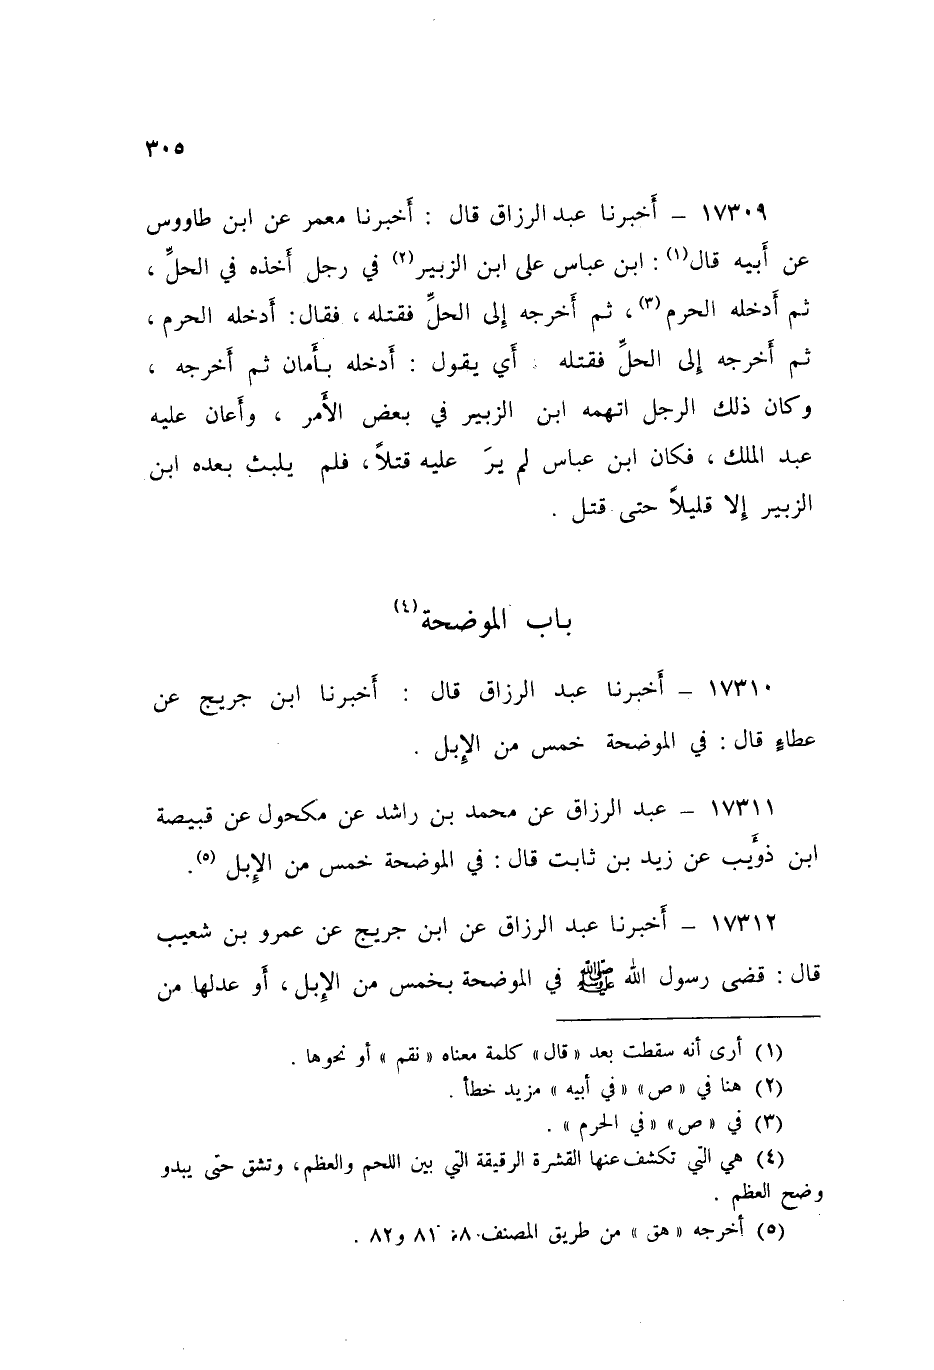 ٣٠٥
١٧٣٠٩ – أَخبرنا عبد الرزاق قال : أَخبرنا معمر عن ابن طاووس
عن أَبيه قال(١) : ابن عباس على ابن الزبير(٢) في رجل أَخذه في الحلِّ ،
ثم أَدخله الحرم(٣) ، ثم أَخرجه إلى الحلِّ فقتله ، فقال : أَدخله الحرم ،
ثم أَخرجه إلى الحلِّ فقتله . أَي يقول : أَدخله بأَمان ثم أَخرجه ،
وكان ذلك الرجل اتهمه ابن الزبير في بعض الأَمر ، وأَعان عليه
عبد الملك ، فكان ابن عباس لم يرَ عليه قتلاً ، فلم يلبث بعده ابن
الزبير إلا قليلاً حتى قتل .
باب الموضحة(٤)
١٧٣١٠ – أَخبرنا عبد الرزاق قال : أَخبرنا ابن جريج عن
عطاءٍ قال : في الموضحة خمس من الإبل .
١٧٣١١ – عبد الرزاق عن محمد بن راشد عن مكحول عن قبيصة
ابن ذؤَيب عن زيد بن ثابت قال : في الموضحة خمس من الإبل (٥) .
١٧٣١٢ – أَخبرنا عبد الرزاق عن ابن جريج عن عمرو بن شعيب
قال : قضى رسول الله ﷺ في الموضحة بخمس من الإبل ، أَو عدلها من
(١) أرى أنه سقطت بعد «قال» كلمة معناه «نقم» أو نحوها .
(٢) هنا في «ص» «في أبيه» مزيد خطأ .
(٣) في «ص» «في الحرم» .
(٤) هي التي تكشف عنها القشرة الرقيقة التي بين اللحم والعظم ، وتشق حتى يبدو
وضح العظم .
(٥) أخرجه «هق» من طريق المصنف ٨: ٨١ و٨٢ .